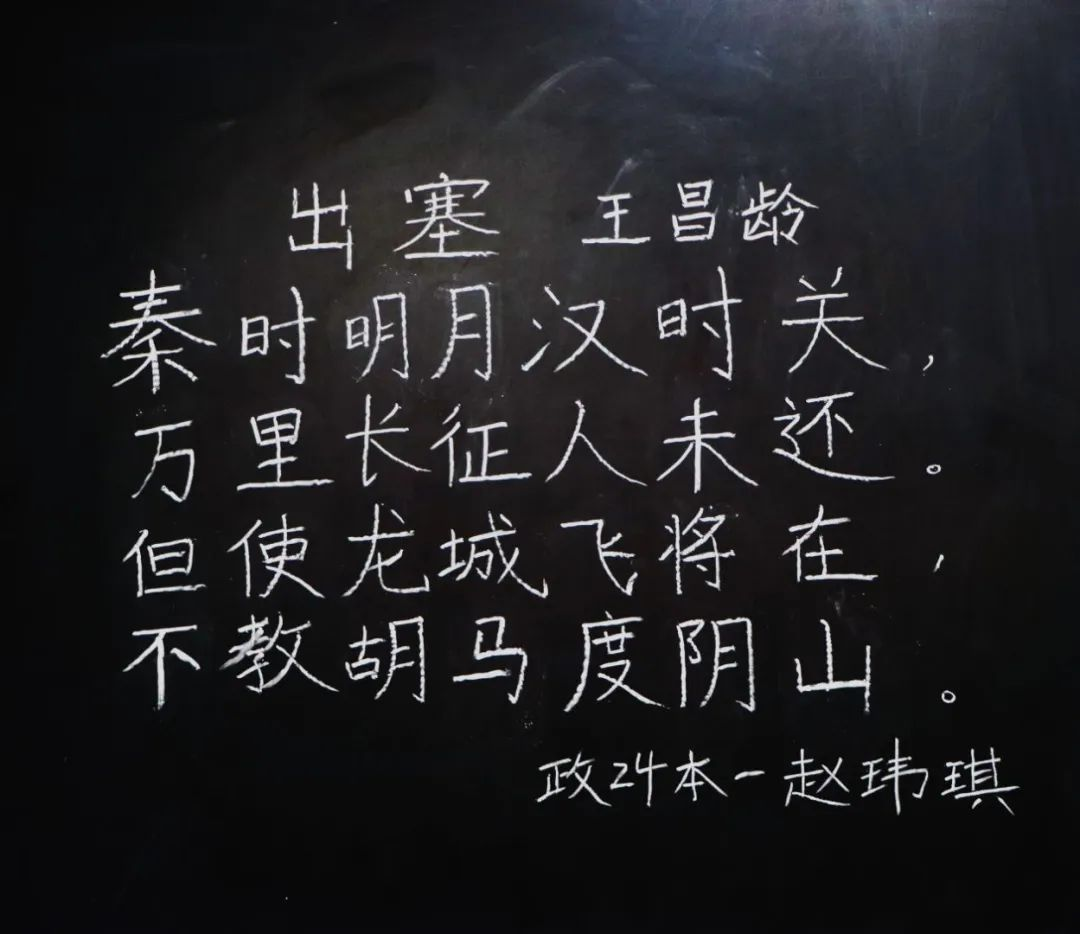 出塞 王昌龄
秦时明月汉时关，
万里长征人未还。
但使龙城飞将在，
不教胡马度阴山。
政24本一赵玮琪